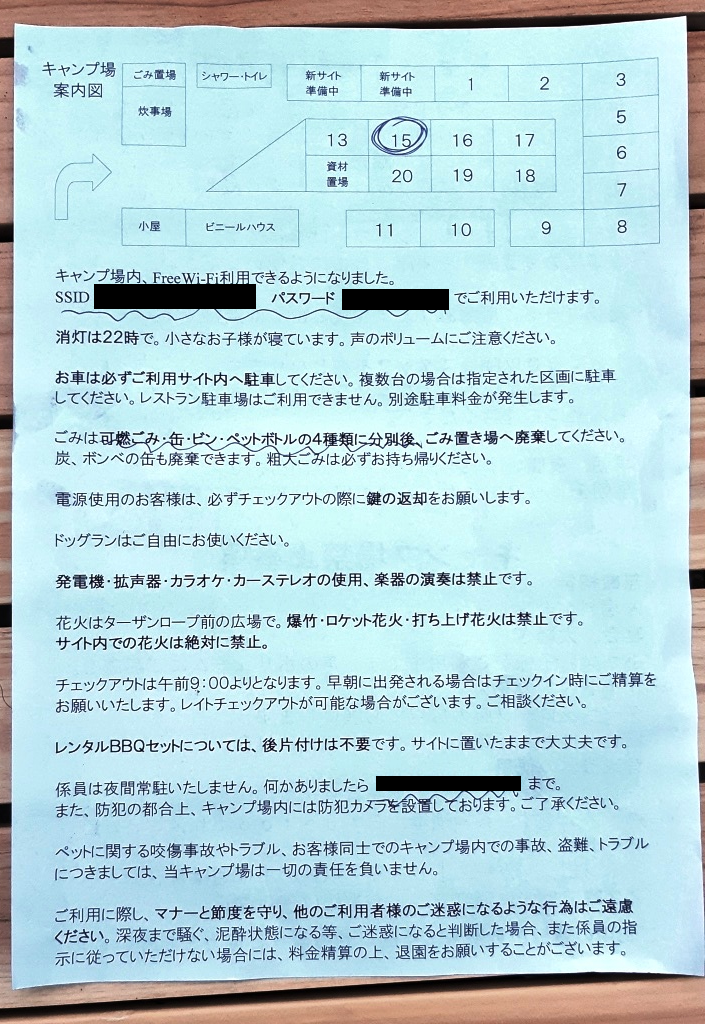 キャンプ場
案内図
ごみ置場
炊事場
シャワー・トイレ
新サイト
準備中
新サイト
準備中
1
2
3
5
6
7
8
13
15
16
17
資材
置場
20
19
18
小屋
ビニールハウス
11
10
9
キャンプ場内、FreeWi-Fi利用できるようになりました。
SSID パスワード でご利用いただけます。
消灯は22時で。小さなお子様が寝ています。声のボリュームにご注意ください。
お車は必ずご利用サイト内へ駐車してください。複数台の場合は指定された区画に駐車
してください。レストラン駐車場はご利用できません。別途駐車料金が発生します。
ごみは可燃ごみ・缶・ビン・ペットボトルの4種類に分別後、ごみ置き場へ廃棄してください。
炭、ボンベの缶も廃棄できます。粗大ごみは必ずお持ち帰りください。
電源使用のお客様は、必ずチェックアウトの際に鍵の返却をお願いします。
ドッグランはご自由にお使いください。
発電機・拡声器・カラオケ・カーステレオの使用、楽器の演奏は禁止です。
花火はターザンロープ前の広場で。爆竹・ロケット花火・打ち上げ花火は禁止です。
サイト内での花火は絶対に禁止。
チェックアウトは午前9:00よりとなります。早朝に出発される場合はチェックイン時にご精算を
お願いいたします。レイトチェックアウトが可能な場合がございます。ご相談ください。
レンタルBBQセットについては、後片付けは不要です。サイトに置いたままで大丈夫です。
係員は夜間常駐いたしません。何かありましたら まで。
また、防犯の都合上、キャンプ場内には防犯カメラを設置しております。ご了承ください。
ペットに関する咬傷事故やトラブル、お客様同士でのキャンプ場内での事故、盗難、トラブル
につきましては、当キャンプ場は一切の責任を負いません。
ご利用に際し、マナーと節度を守り、他のご利用者様のご迷惑になるような行為はご遠慮
ください。深夜まで騒ぐ、泥酔状態になる等、ご迷惑になると判断した場合、また係員の指
示に従っていただけない場合には、料金精算の上、退園をお願いすることがございます。